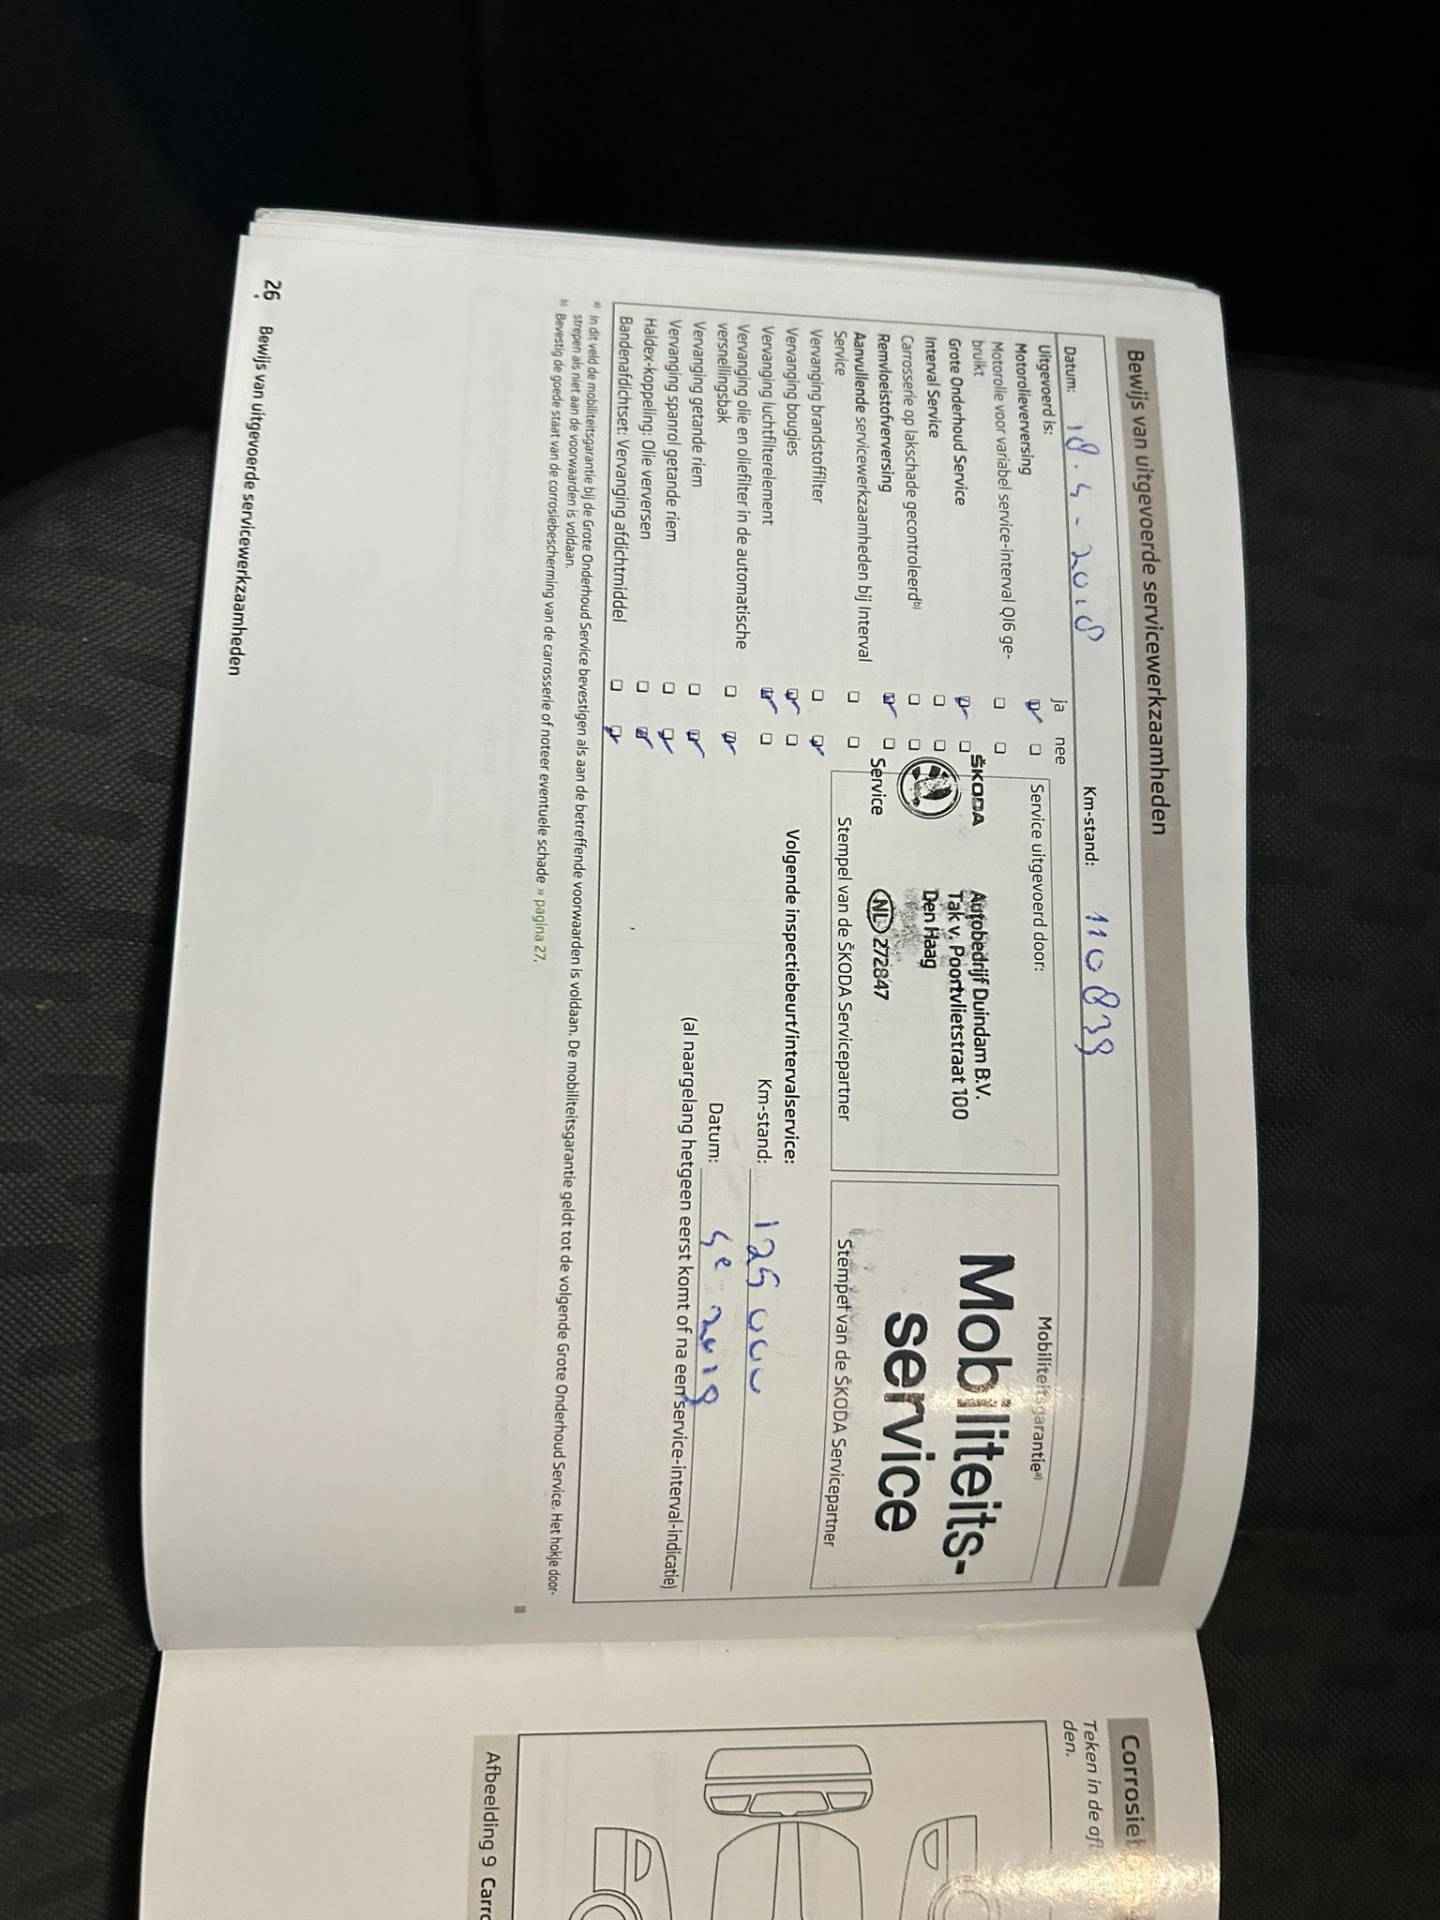 Bewijs van uitgevoerde servicewerkzaamheden
Datum: 18-5-2018 Km-stand: 110839
Uitgevoerd is: ja nee
Motorolieverversing
Motorolie voor variabel service-interval QI6 ge-
bruikt
Grote Onderhoud Service
Interval Service
Carrosserie op lakschade gecontroleerd b)
Remvloeistofverversing
Aanvullende servicewerkzaamheden bij Interval
Service
Vervanging brandstoffilter
Vervanging bougies
Vervanging luchtfilterelement
Vervanging olie en oliefilter in de automatische
versnellingsbak
Vervanging getande riem
Vervanging spanrol getande riem
Haldex-koppeling: Olie verversen
Bandenafdichtset: Vervanging afdichtmiddel
Service uitgevoerd door:
ŠKODA
Service
Autobedrijf Duindam B.V.
Tak v. Poortvlietstraat 100
Den Haag
NL 272847
Stempel van de ŠKODA Servicepartner
Mobiliteitsgarantie a)
Mobiliteits-
service
Stempel van de ŠKODA Servicepartner
Volgende inspectiebeurt/intervalservice:
Km-stand: 125000
Datum: 5e 2019
(al naargelang hetgeen eerst komt of na een service-interval-indicatie)
a) In dit veld de mobiliteitsgarantie bij de Grote Onderhoud Service bevestigen als aan de betreffende voorwaarden is voldaan. De mobiliteitsgarantie geldt tot de volgende Grote Onderhoud Service. Het hokje door-
strepen als niet aan de voorwaarden is voldaan.
b) Bevestig de goede staat van de corrosiebescherming van de carrosserie of noteer eventuele schade » pagina 27.
26 Bewijs van uitgevoerde servicewerkzaamheden
Teken in de
den.
Afbeelding 9